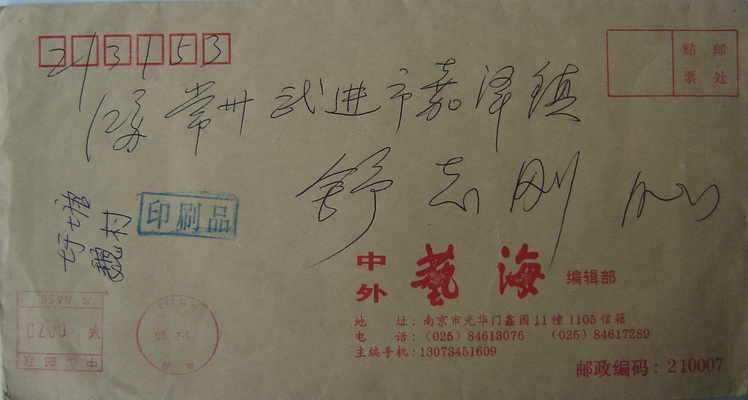 213153
贴 邮
票 处
江苏常州武进市嘉泽镇
舒志刚 收
魏村
印刷品
中外 藝海 编辑部
地 址：南京市光华门鑫园11幢1105信箱
电 话：（025）84613076 （025）84617289
主编手机：13073451609
邮政编码：210007